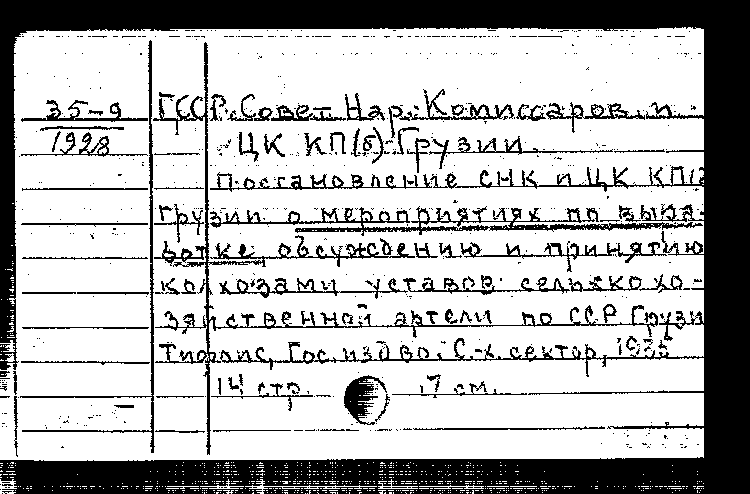 35-9
1928
ГССР. Совет Нар. Комиссаров и
ЦК КП(б) Грузии.
Постановление СНК и ЦК КП(б
Грузии о мероприятиях по выра-
ботке, обсуждению и принятию
колхозами уставов сельскохо-
зяйственной артели по ССР Грузи
Тифлис, Гос. изд-во. С.-х. сектор, 1935
14 стр. 17 см.